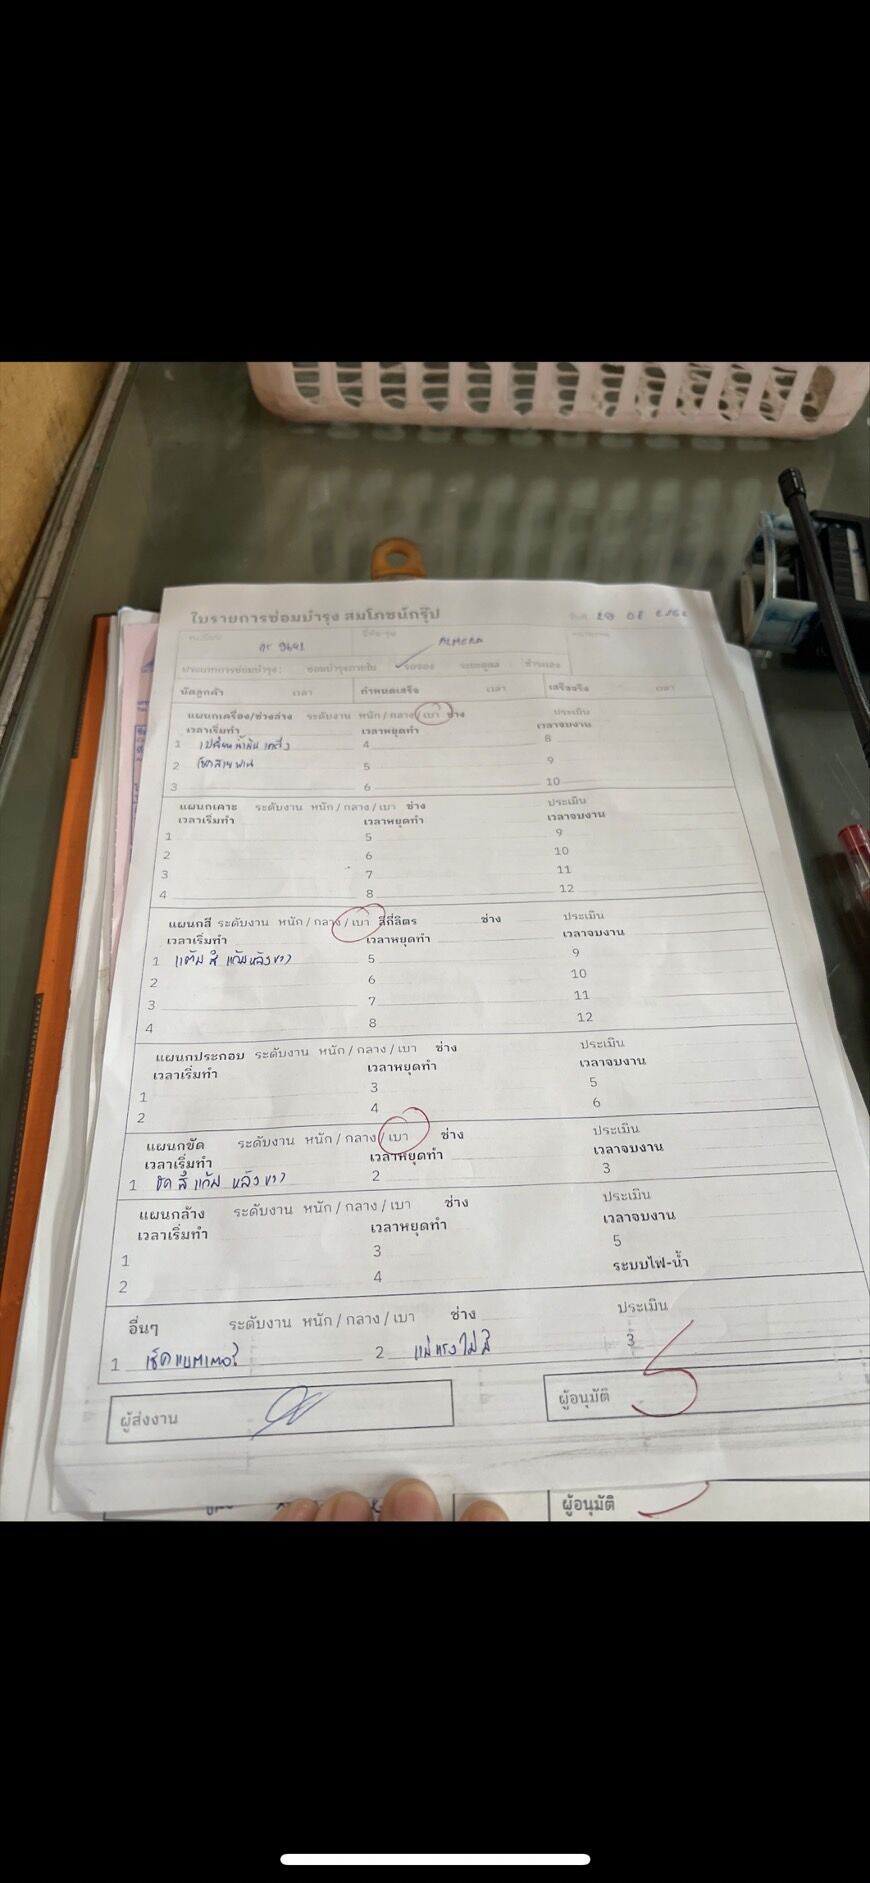 ใบรายการซ่อมบำรุง สมโภชน์กรุ๊ป
9641 ALMERA
ประเภทการซ่อมบำรุง: ซ่อมบำรุงภายใน รถจอง
นัดลูกค้า เวลา กำหนดเสร็จ เวลา เสร็จจริง เวลา
แผนกเครื่อง/ช่วงล่าง ระดับงาน หนัก / กลาง / เบา ช่าง ประเมิน
เวลาเริ่มทำ เวลาหยุดทำ เวลาจบงาน
1 เปลี่ยนน้ำมันเครื่อง 4 8
2 เช็คสายพาน 5 9
3 6 10
แผนกเคาะ ระดับงาน หนัก / กลาง / เบา ช่าง ประเมิน
เวลาเริ่มทำ เวลาหยุดทำ เวลาจบงาน
1 5 9
2 6 10
3 7 11
4 8 12
แผนกสี ระดับงาน หนัก / กลาง / เบา สีกี่ลิตร ช่าง ประเมิน
เวลาเริ่มทำ เวลาหยุดทำ เวลาจบงาน
1 แต้มสี แก้มหลังขวา 5 9
2 6 10
3 7 11
4 8 12
แผนกประกอบ ระดับงาน หนัก / กลาง / เบา ช่าง ประเมิน
เวลาเริ่มทำ เวลาหยุดทำ เวลาจบงาน
1 3 5
2 4 6
แผนกขัด ระดับงาน หนัก / กลาง / เบา ช่าง ประเมิน
เวลาเริ่มทำ เวลาหยุดทำ เวลาจบงาน
1 ขัดสีแก้ม หลังขวา 2 3
แผนกล้าง ระดับงาน หนัก / กลาง / เบา ช่าง ประเมิน
เวลาเริ่มทำ เวลาหยุดทำ เวลาจบงาน
1 3 5
2 4 ระบบไฟ-น้ำ
อื่นๆ ระดับงาน หนัก / กลาง / เบา ช่าง ประเมิน
1 เช็คแบตเตอรี่ 2 แม่แรงไม่มี 3
ผู้ส่งงาน ผู้อนุมัติ
ผู้อนุมัติ